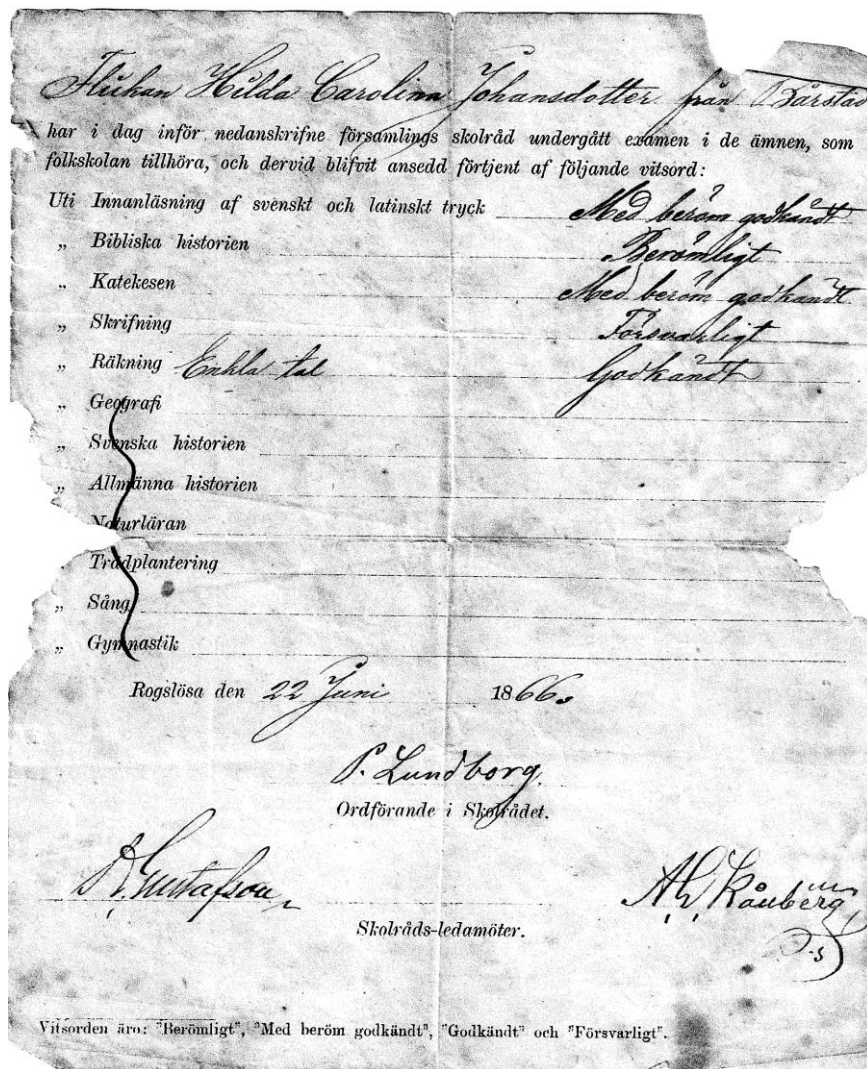 Flickan Hilda Carolina Johansdotter från Bårstad
har i dag inför nedanskrifne församlings skolråd undergått examen i de ämnen, som
folkskolan tillhöra, och dervid blifvit ansedd förtjent af följande vitsord:
Uti Innanläsning af svenskt och latinskt tryck Med beröm godkändt
„ Bibliska historien Berömligt
„ Katekesen Med beröm godkändt
„ Skrifning Försvarligt
„ Räkning Enkla tal Godkändt
„ Geografi
„ Svenska historien
„ Allmänna historien
Naturläran
„ Trädplantering
„ Sång
„ Gymnastik
Rogslösa den 22 Juni 1866.
P. Lundborg.
Ordförande i Skolrådet.
Gustafson
Skolråds-ledamöter.
Vitsorden äro: "Berömligt", "Med beröm godkändt", "Godkändt" och "Försvarligt".